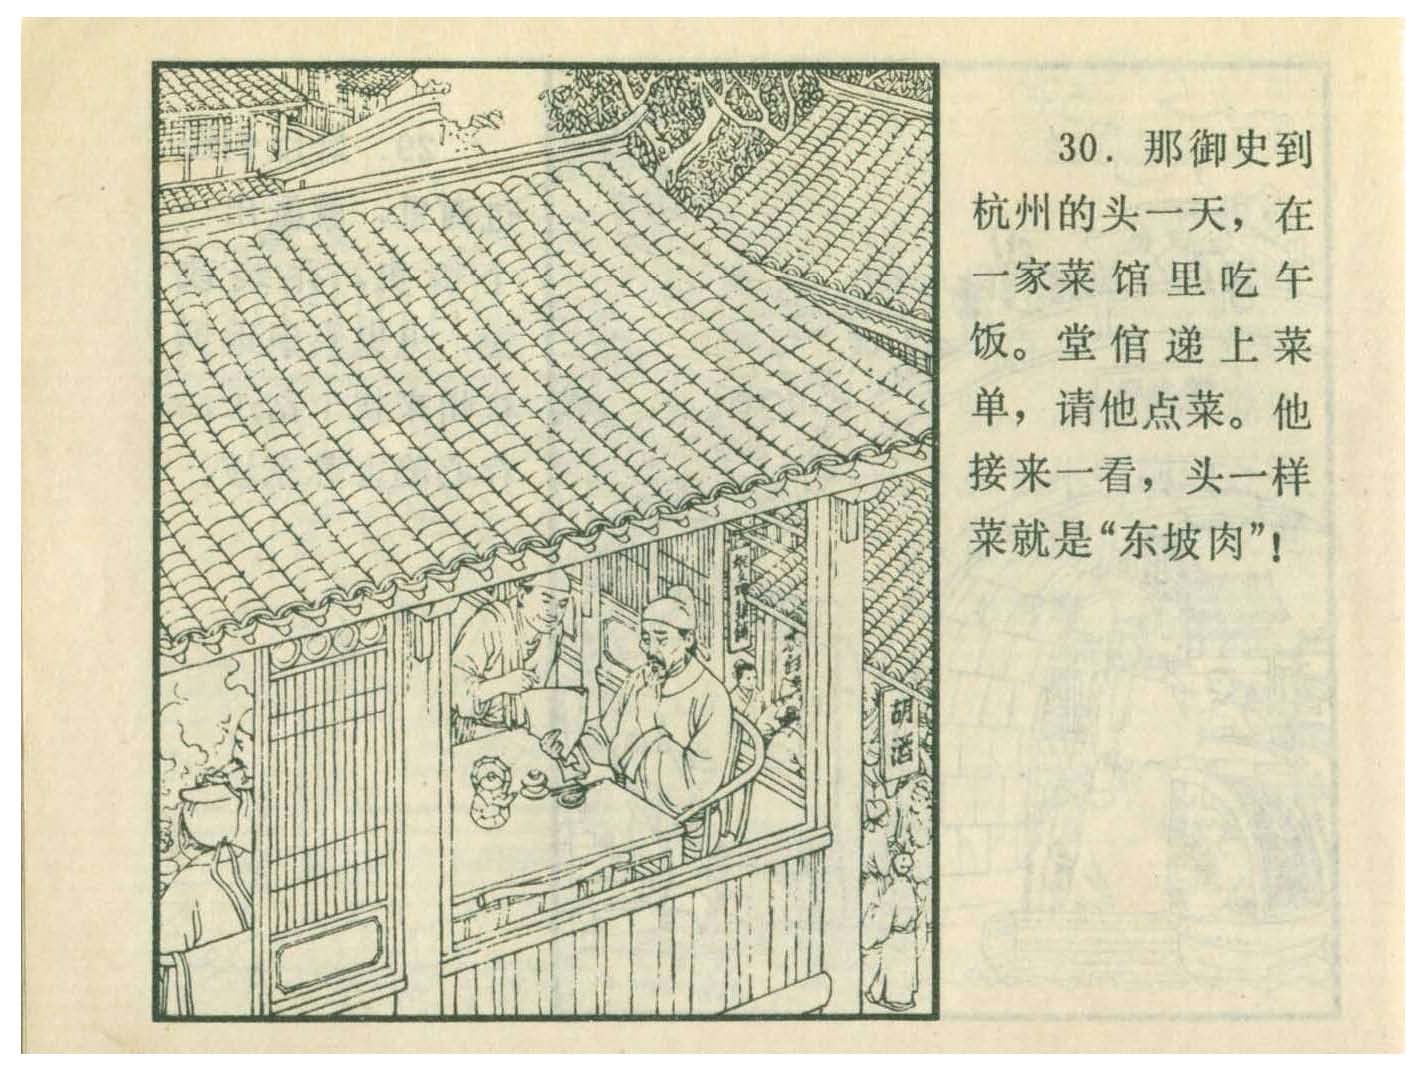 30. 那御史到
杭州的头一天，在
一家菜馆里吃午
饭。堂倌递上菜
单，请他点菜。他
接来一看，头一样
菜就是“东坡肉”！
胡